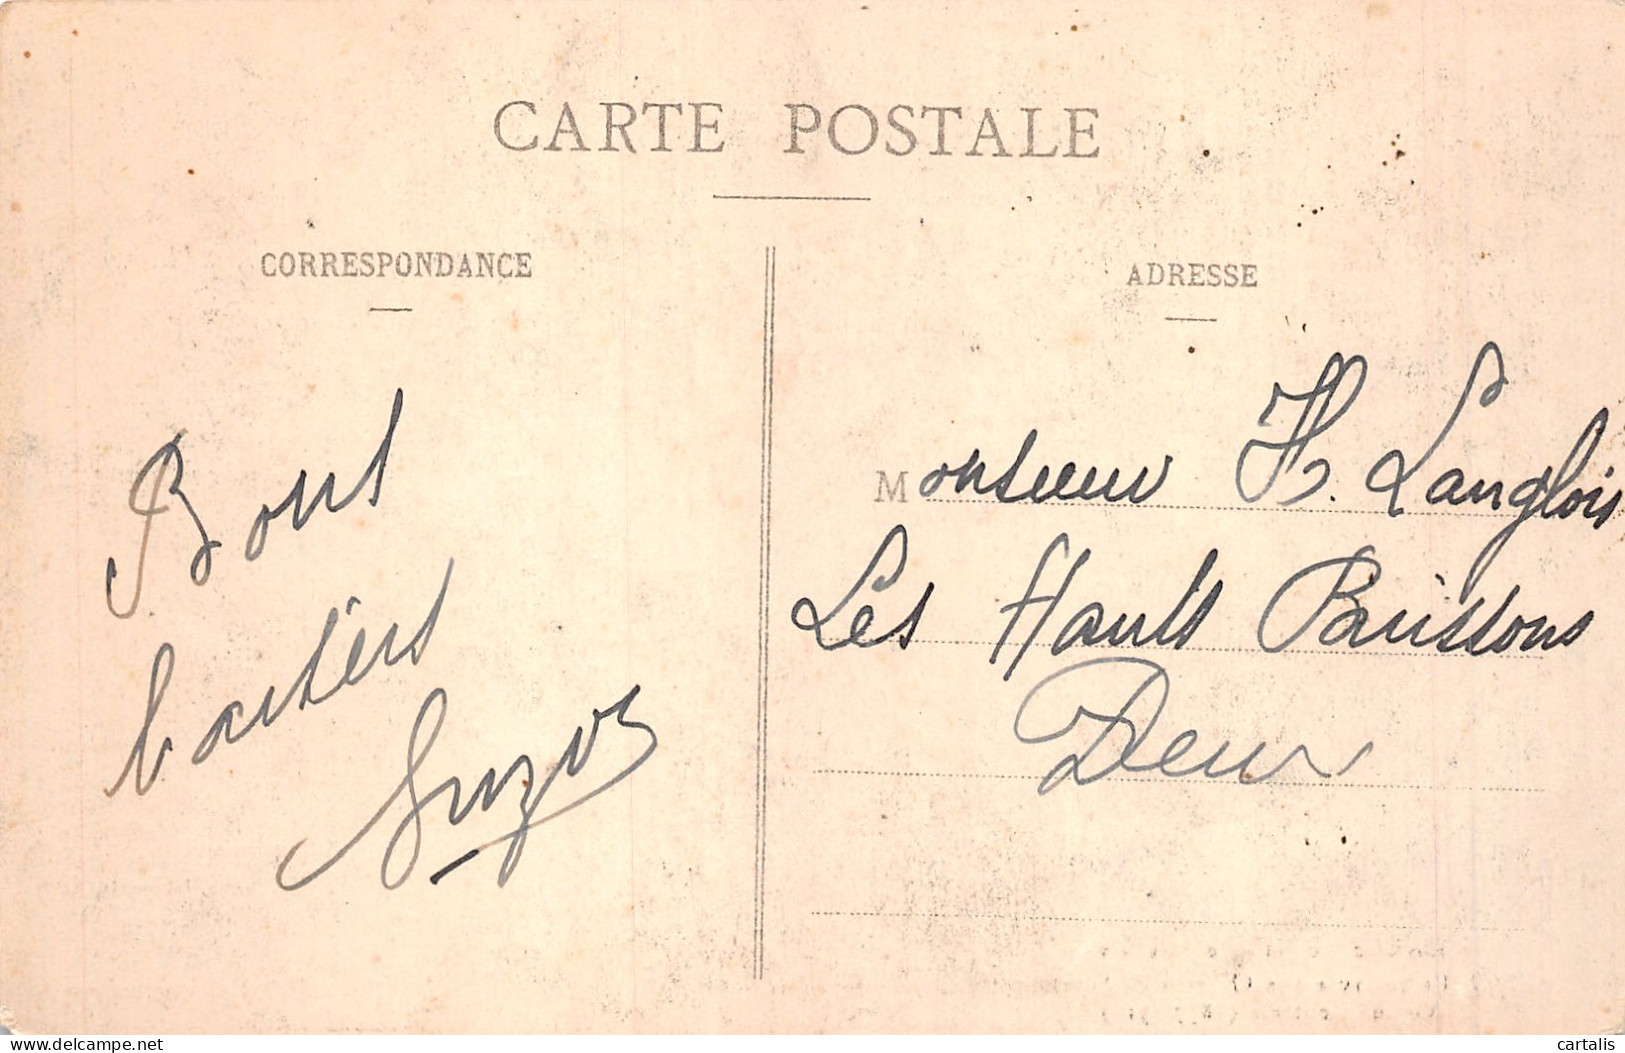 CARTE POSTALE
CORRESPONDANCE
Bons
baisers
ADRESSE
Monsieur H. Langlois
Les Hauts Buissons
delcampe.net
cartalis